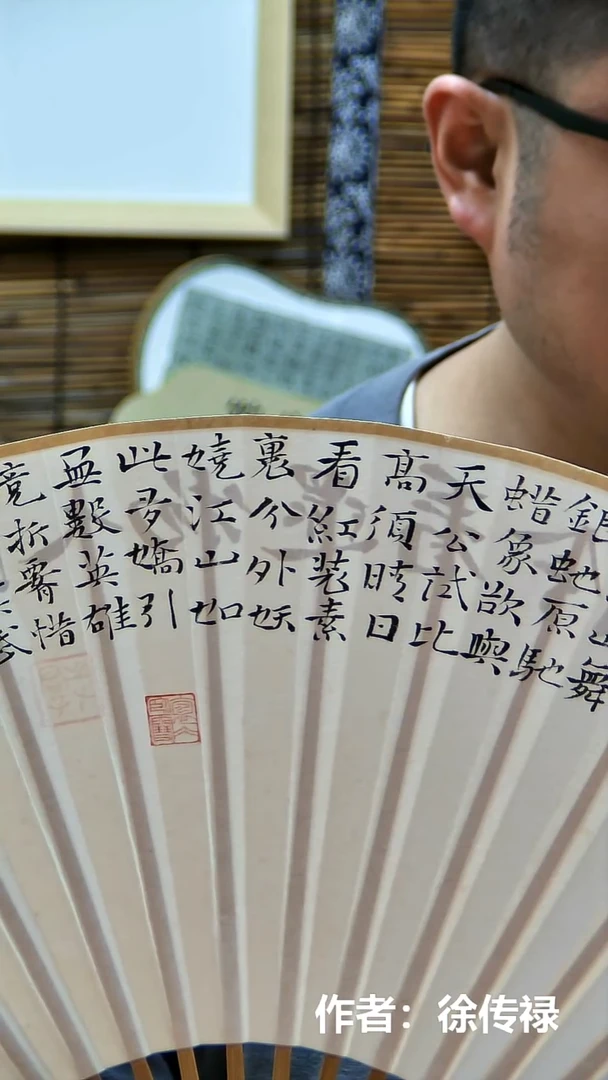 山舞
銀蛇原馳
蜡象欲與
天公試比
高須晴日
看紅裝素
裹分外妖
嬈江山如
此多嬌引
無數英雄
競折腰惜
武
作者：徐传禄